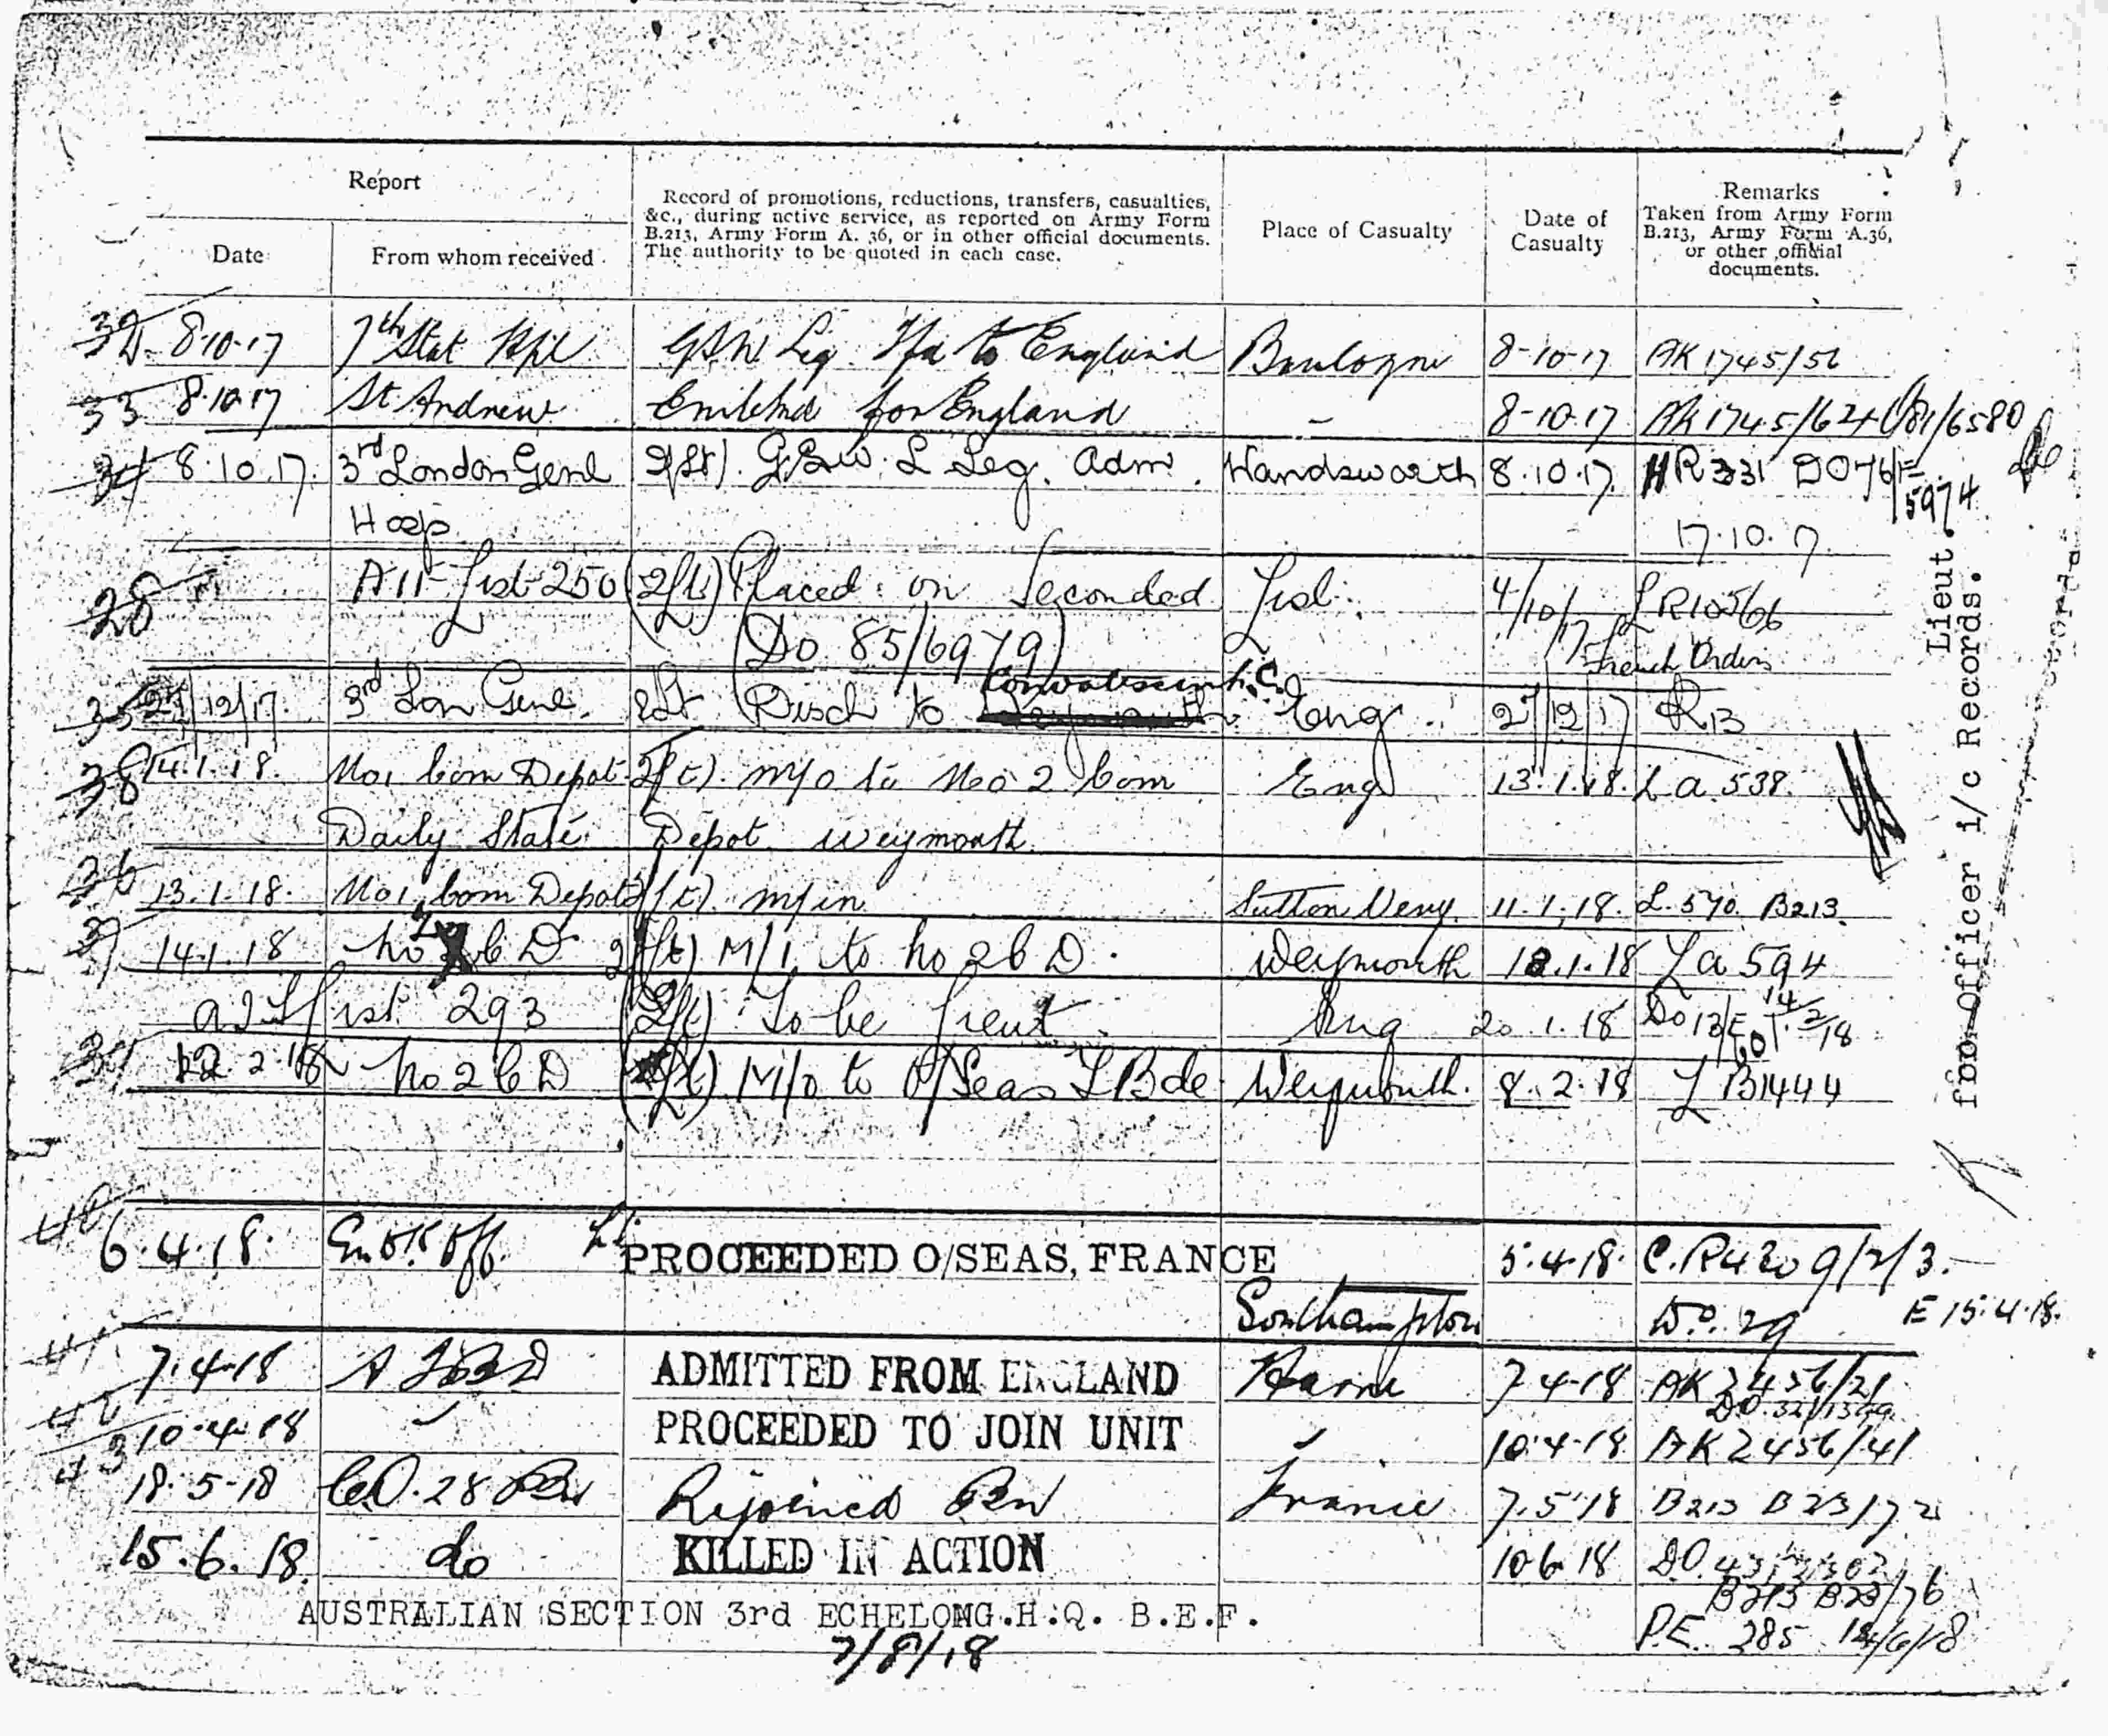 Report
Record of promotions, reductions, transfers, casualties,
&c., during active service, as reported on Army Form
B.213, Army Form A. 36, or in other official documents.
The authority to be quoted in each case.
Place of Casualty
Date of
Casualty
Remarks
Taken from Army Form
B.213, Army Form A.36,
or other official
documents.
Date
From whom received
8.10.17 7th Stat Hpl GSW Leg. Tfd to England Boulogne 8-10-17 AK 1745/56
33 8.10.17 St Andrew Embkd for England - 8-10-17 AK 1745/62
34 8.10.17. 3rd London Genl 2/Lt). GSW. L Leg. Adm. Wandsworth 8.10.17. HR 331 DO 76/E
5974
Hosp 17.10.7
28 AIF List 250 (2/Lt) Placed on Seconded List. 4/10/17 LR105/66
(DO 85/6979) French Orders
Convalescent
35 27/12/17. 3rd Lon Genl. 2Lt Disch to Eng. 27/12/17 R13
38 14.1.18. No1 Com Depot 2/Lt). m/o to No 2 Com Eng 13.1.18. La 538.
Daily State Depot Weymouth.
36 13.1.18. No1 Com Depot 2/Lt). m/in Sutton Veny. 11.1.18. L. 570. B213.
37 14.1.18 No 2 C D 2/Lt) M/I to No 2 C D. Weymouth 13.1.18 La 594
A.I.F List 293 (2/Lt) To be Lieut. Eng 20.1.18 DO 13/E 14/2/18
60
2.18 No 2 C D (Lt) M/o to O/Seas T Bde Weymouth. 8.2.18 L B1444
40 6.4.18. Emb Off. Lt PROCEEDED O/SEAS, FRANCE 5.4.18. C.R420 9/2/3.
Southampton D.O. 29 E 15.4.18.
41 7.4.18 A I B D ADMITTED FROM ENGLAND Havre 7-4-18 AK 2456/21
42 10.4.18 PROCEEDED TO JOIN UNIT 10.4.18 AK 2456/41
43 18.5-18 C.O. 28 Bn Rejoined Bn France 7.5.18 B213 B23/72
15.6.18. do KILLED IN ACTION 10.6.18 D.O.
B213 B23/76
AUSTRALIAN SECTION 3rd ECHELON G.H.Q. B.E.F.
P.E. 285 14/6/18
7/8/18
Lieut.
for Officer i/c Records.